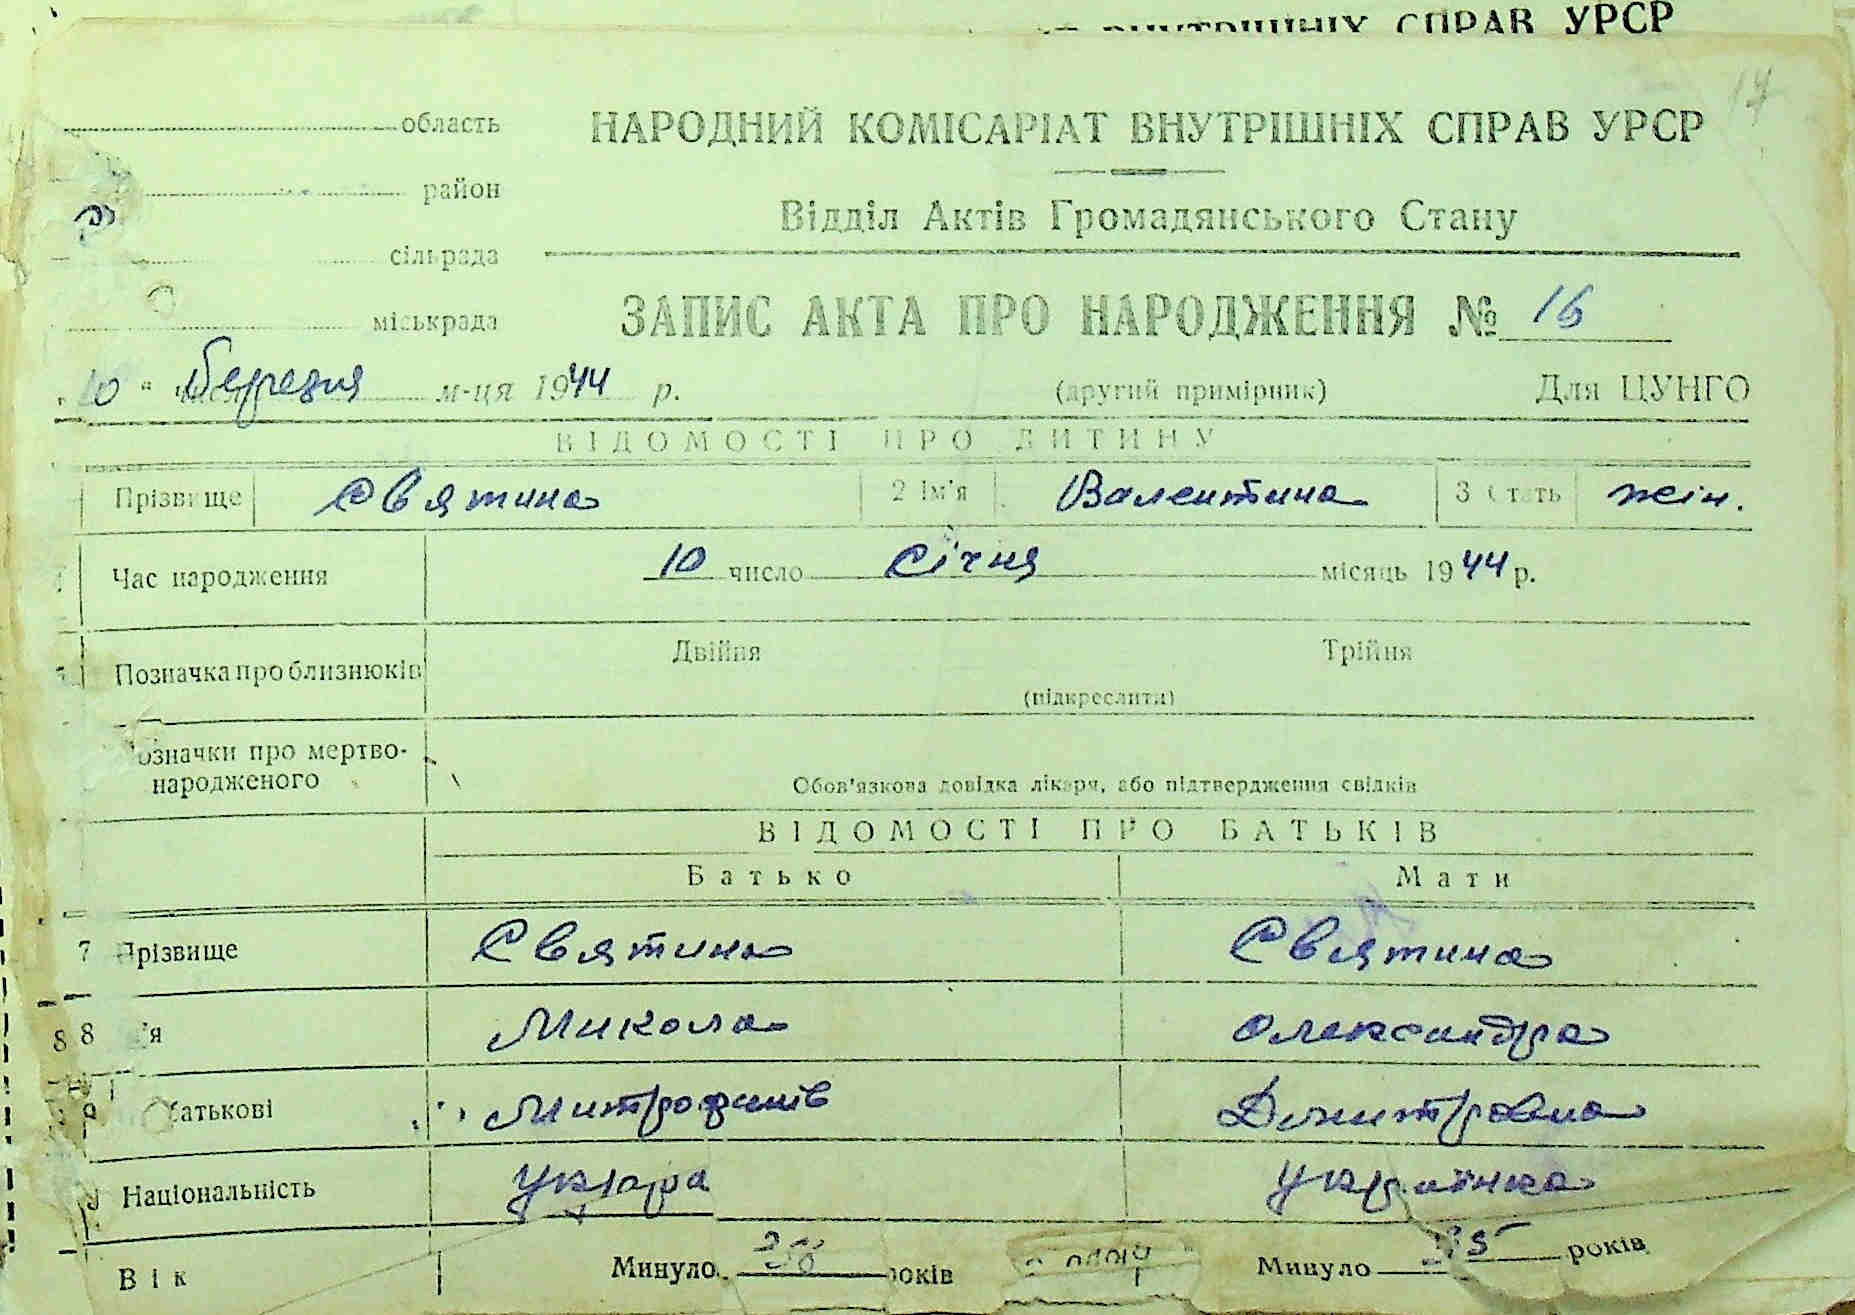 ВНУТРІШНІХ СПРАВ УРСР
17
область
район
сільрада
міськрада
НАРОДНИЙ КОМІСАРІАТ ВНУТРІШНІХ СПРАВ УРСР
Відділ Актів Громадянського Стану
ЗАПИС АКТА ПРО НАРОДЖЕННЯ № 16
10 " березня м-ця 1944 р. (другий примірник) Для ЦУНГО
ВІДОМОСТІ ПРО ДИТИНУ
Прізвище Святина 2 Ім'я Валентина 3 Стать жін.
Час народження 10 число січня місяць 1944 р.
Позначка про близнюків Двійня Трійня
(підкреслити)
означки про мертво-
народженого Обов'язкова довідка лікаря, або підтвердження свідків
ВІДОМОСТІ ПРО БАТЬКІВ
Батько Мати
7 Прізвище Святина Святина
8 8 'я Микола Олександра
9 батькові Митрофанів Дмитровна
Національність Україна
Вік Минуло років Минуло 35 років